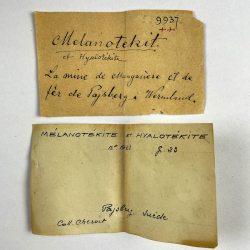 9937.
Melanotekit.
et Hyalotékite
La mine de Manganèse et de
fer de Pajsberg, Wermland.
MELANOTEKITE et HYALOTÉKITE
g. 23
Pajsberg Suède
Coll.